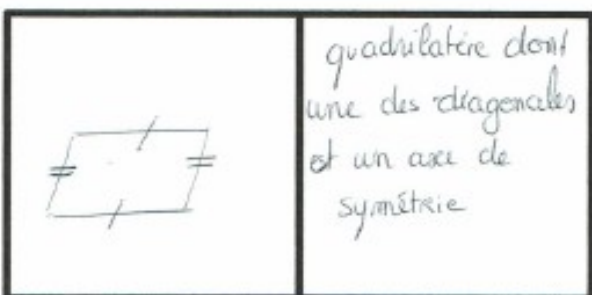 quadrilatère dont
une des diagonales
est un axe de
symétrie